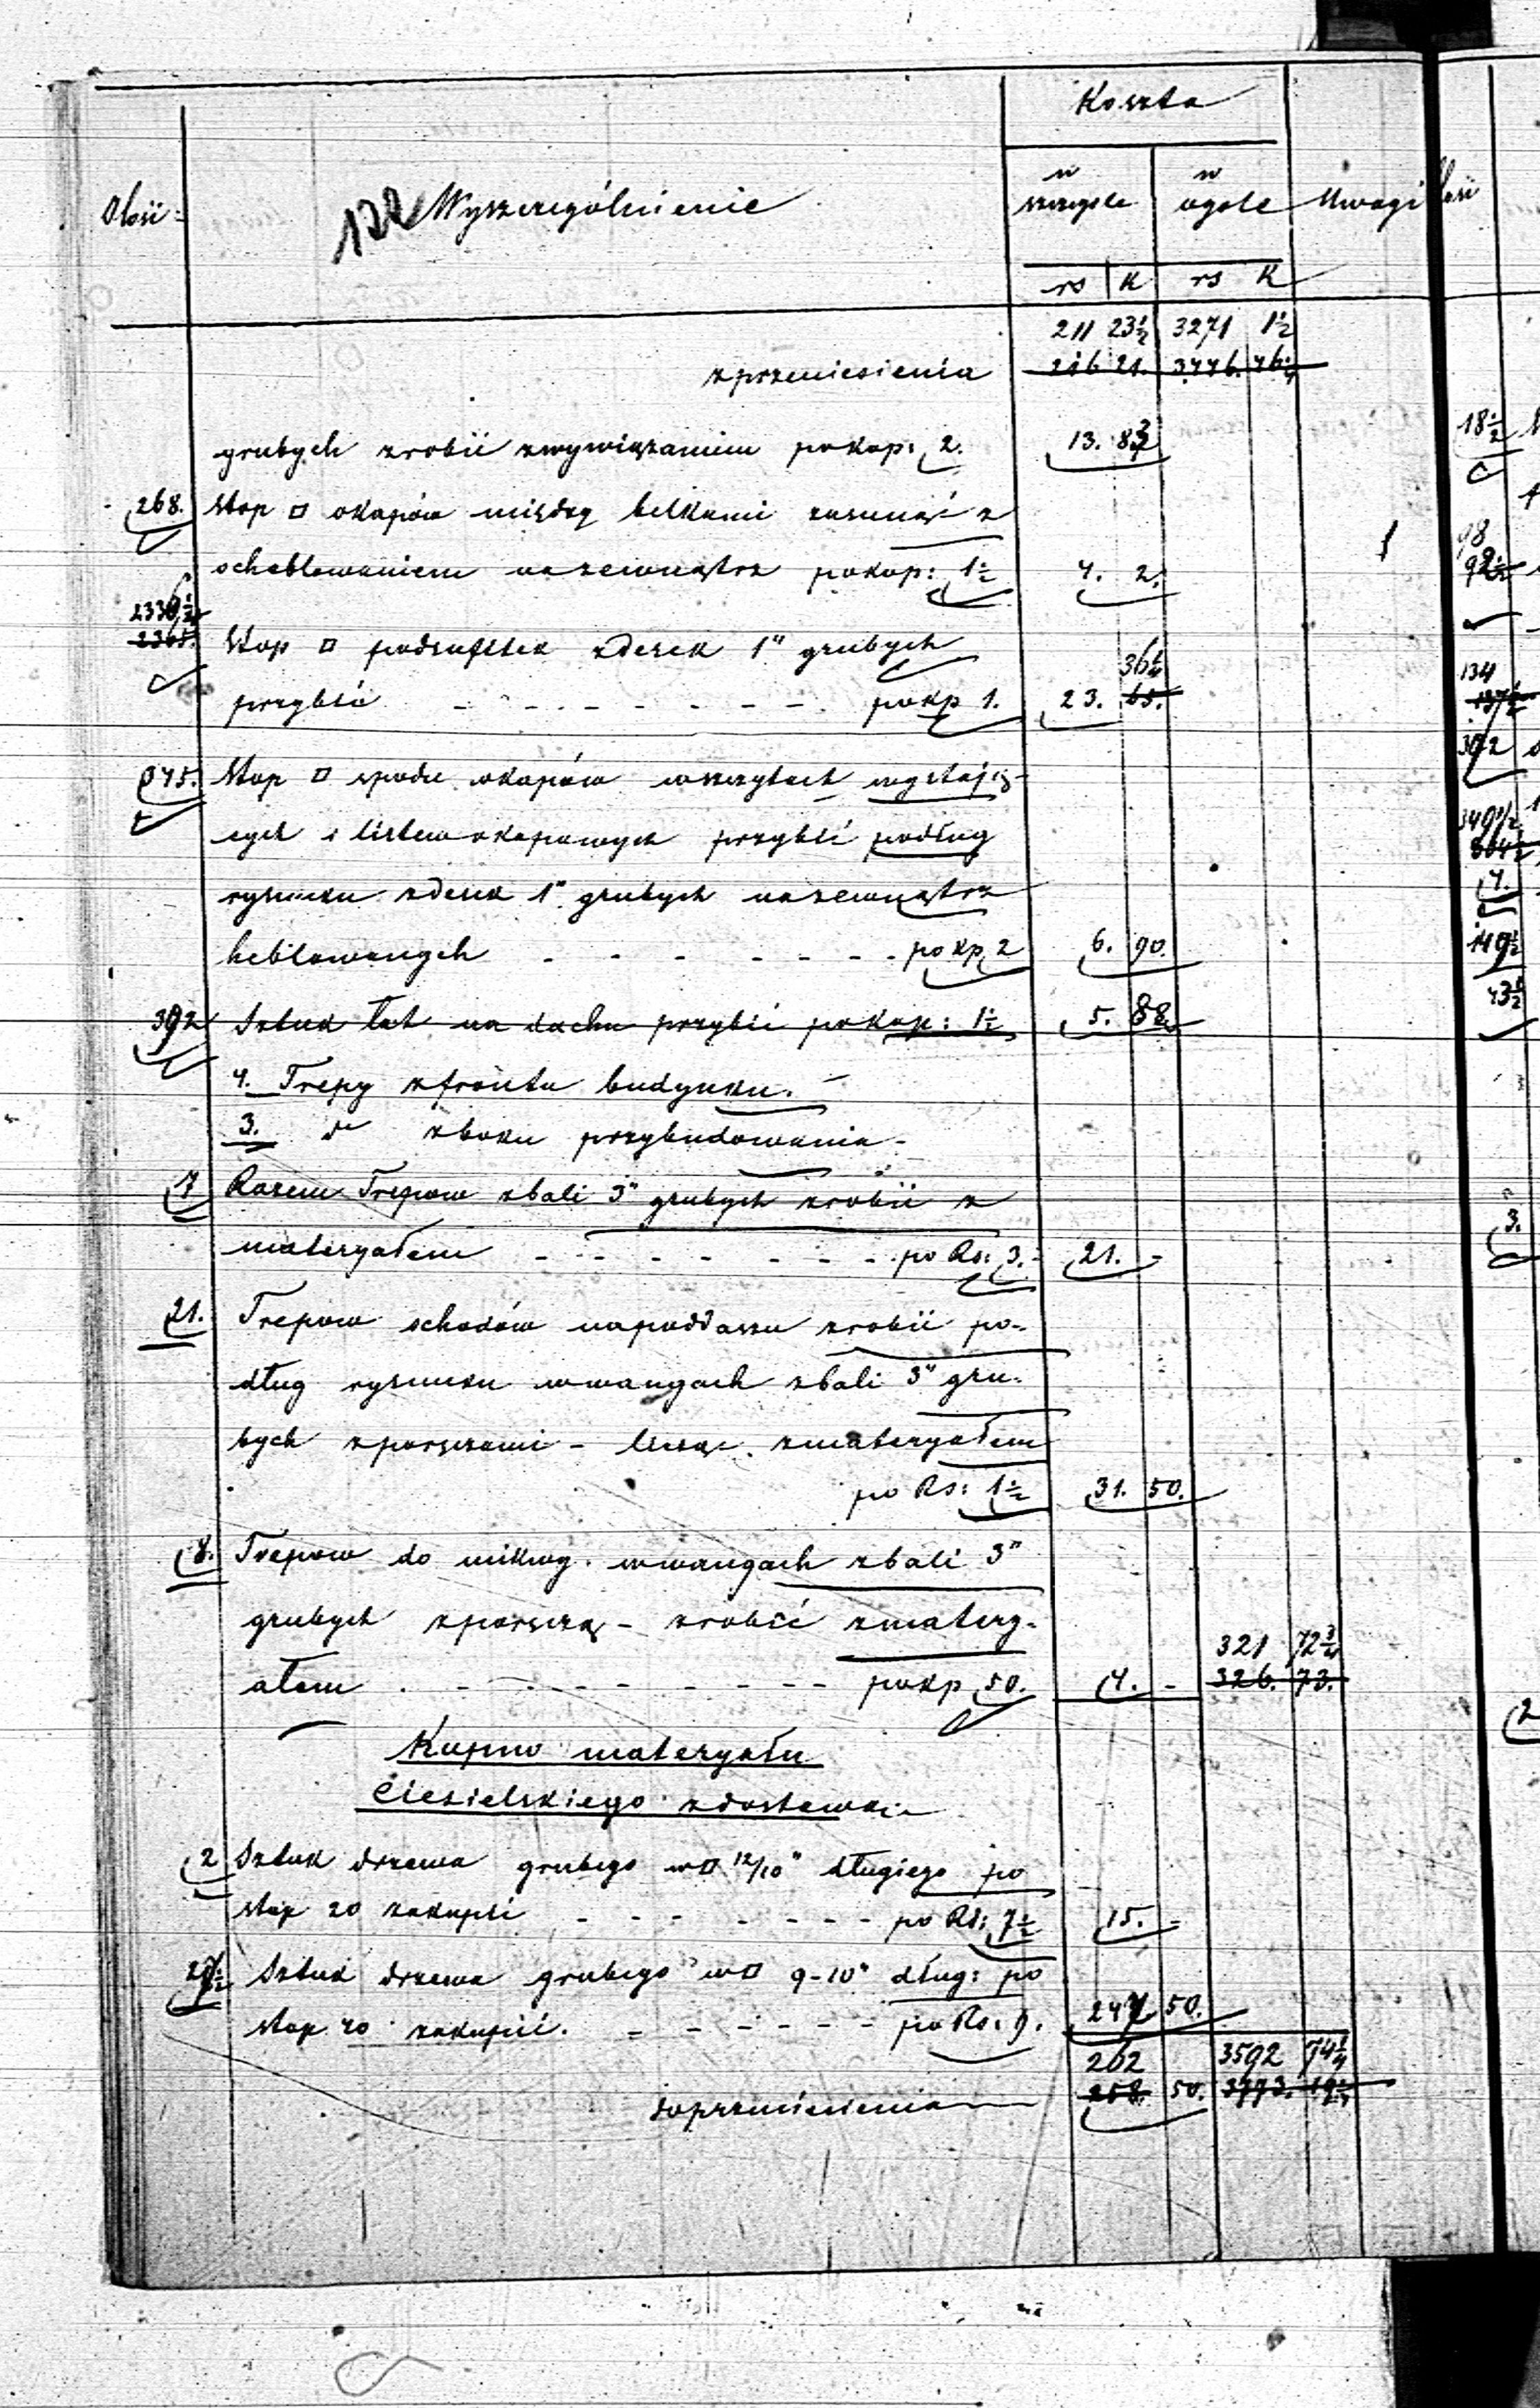 Koszta
Ilość
132 Wyszczególnienie
w szczególe
w ogóle
Uwagi
rs K rs K
211 23½ 3271 1½
z przeniesienia 216 21. 3446. 46¼
grubych zrobić z wywiązaniem po kop: 2. 13. 83
268. Stop □ okapów między belkami zasunąć z
oheblowaniem na zewnątrz po kop: 1½ 4. 2.
2336½
2365. Stop □ podsufitek z desek 1" grubych
36½
przybić - - - - - - - po kp 1. 23. 65.
345. Stop □ spodu okapów w szczytach wystają-
cych i listew okapowych przybić podług
rysunku z desek 1" grubych na zewnątrz
heblowanych - - - - - - po kp 2 6. 90.
392 Sztuk łat na dachu przybić po kop: 1½ 5. 88.
4. Trepy z frontu budynku. -
3. dº z boku przybudowania -
7 Razem Trepów z bali 3" grubych zrobić z
materyałem - - - - - - - po Rs: 3. - 21. -
21. Trepów schodów na poddasze zrobić po-
dług rysunku w wangach z bali 3" gru-
bych z poręczami - licząc z materyałem
po Rs: 1½ 31. 50.
8. Trepów do mikwy w wangach z bali 3"
grubych z poręczą - zrobić z matery-
321 72¾
ałem . - - - - - - - - po kp 50. 4. - 326. 73.
Kupno materyału
Ciesielskiego z dostawką
2 Sztuk drzewa grubego w □ 12/10" długiego po
stop 20 zakupić - - - - - - - po Rs: 7½ 15. -
27½ Sztuk drzewa grubego w □ 9-10" dług: po
stop 40 zakupić. - - - - - - po Rs: 9. 247 50.
262 3592 74¼
do przeniesienia 258. 50. 3773. 19¼